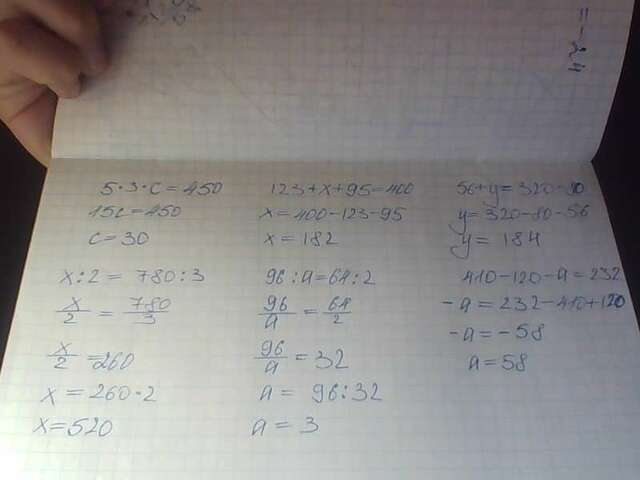 5·3·c=450
15c=450
c=30
123+x+95=400
x=400-123-95
x=182
56+y=320-80
y=320-80-56
y=184
x:2=780:3
x/2=780/3
x/2=260
x=260·2
x=520
96:a=64:2
96/a=64/2
96/a=32
a=96:32
a=3
410-120-a=232
-a=232-410+120
-a=-58
a=58